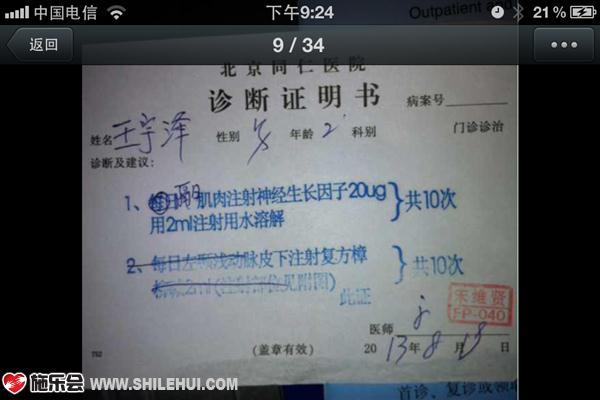 中国电信 下午9:24 21%
Outpatient and
返回 9 / 34
北京同仁医院
诊断证明书 病案号
姓名 王宇泽 性别 年龄 2 科别 门诊诊治
诊断及建议:
1、每日 肌肉注射神经生长因子20ug
用2ml注射用水溶解 }共10次
2、每日左颞浅动脉皮下注射复方樟
柳碱2ml(注射部位见附图) }共10次
此证
宋维贤
FP-040
医师
(盖章有效) 2013年8月19日
752
首诊、复诊或领取
施乐会 WWW.SHILEHUI.COM